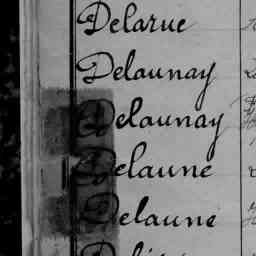 Delarue
Delaunay
Delaunay
Delaune
Delauné